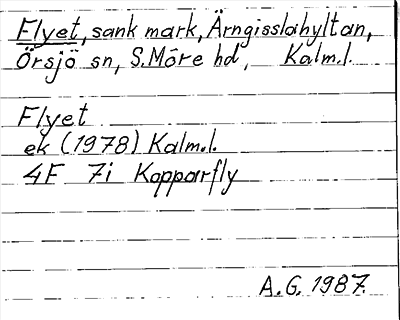 Flyet, sank mark, Ärngisslahyltan,
Örsjö sn, S. Möre hd, Kalm.l.
Flyet
ek (1978) Kalm.l.
4F 7i Kopparfly
A.G. 1987.